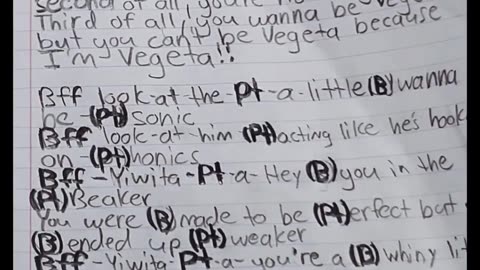 second of all, you're no
Third of all, you wanna be Veg
but you can't be Vegeta because
I'm Vegeta!!
Bff look-at the Pt-a-little (B) wanna
be-(Pt) sonic
Bff look-at him (Pt) acting like he's hook
on-(Pt) honics
Bff-Yiwita-Pt-a-Hey (B) you in the
(Pt) Beaker
You were (B) made to be (Pt) erfect but
(B) ended up (Pt) weaker
Bff-Yiwita-Pt-a-you're a (B) whiny lit